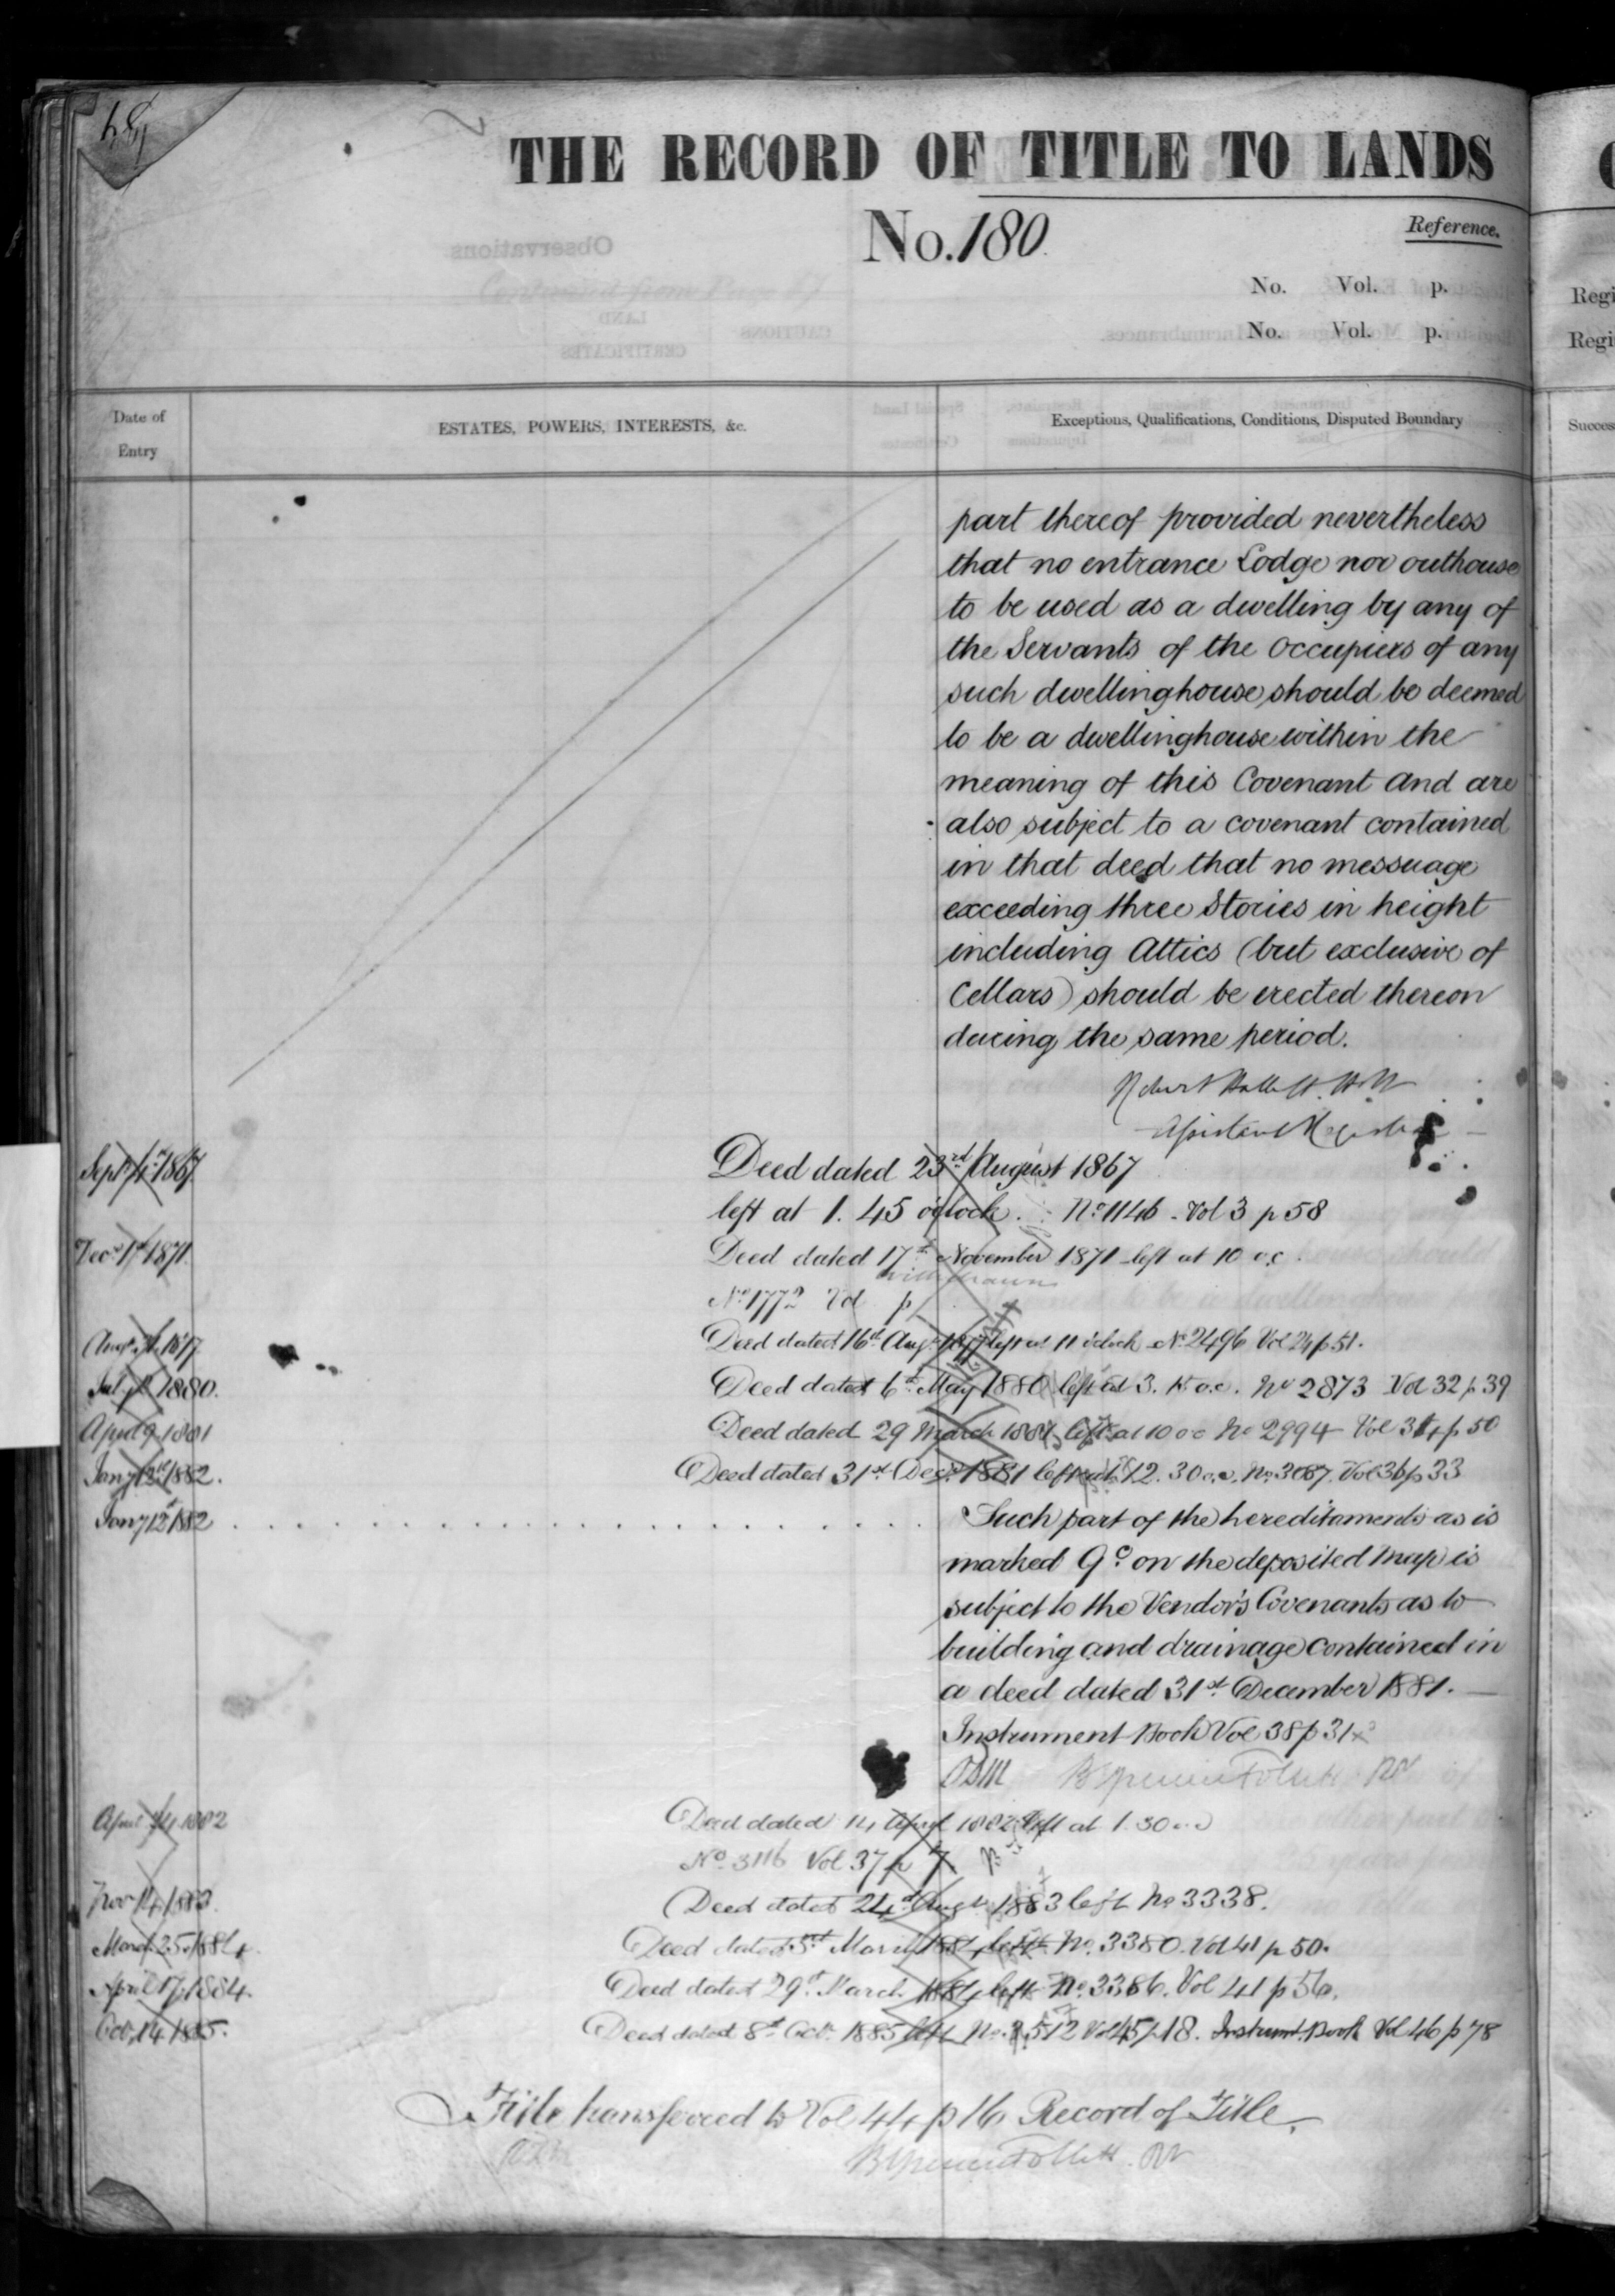 THE RECORD OF TITLE TO LANDS
No. 180.
Reference.
No. Vol. p.
No. Vol. p.
Date of Entry
ESTATES, POWERS, INTERESTS, &c.
Exceptions, Qualifications, Conditions, Disputed Boundary
part thereof provided nevertheless
that no entrance Lodge nor outhouse
to be used as a dwelling by any of
the Servants of the Occupiers of any
such dwellinghouse should be deemed
to be a dwellinghouse within the
meaning of this Covenant and are
also subject to a covenant contained
in that deed that no messuage
exceeding three Stories in height
including Attics (but exclusive of
Cellars) should be erected thereon
during the same period.
Assistant Registrar
Sept 1867 Deed dated 23rd August 1867
left at 1.45 o'clock. No. 1146 - Vol 3 p 58
Decr 1st 1871 Deed dated 17th November 1871 left at 10 o.c.
withdrawn
No. 1772 Vol p
Deed dated 16th Augt 1877 left at 11 o'clock No. 2496 Vol 24 p 51.
1880. Deed dated 6th May 1880 left at 3. 15 o.c. No 2873 Vol 32 p 39
April 9 1881 Deed dated 29 March 1881 left at 10 o c No 2994 Vol 34 p 50
Jany 12th 1882. Deed dated 31st Decr. 1881 left at 12.30 o.c. No. 3067. Vol 36 p 33
Jany 12th 1882 . . . . . . . . . . . . . . . . . . . . Such part of the hereditaments as is
marked 9c on the deposited map is
subject to the Vendor's Covenants as to
building and drainage contained in
a deed dated 31st December 1881.
Instrument Book Vol 38 p 31
April 14 1882 Deed dated 14 April 1882 left at 1.30 o.c
No. 3116 Vol 37 p 7
Nov 14 1883. Deed dated 24th Augt 1883 left No 3338.
March 25. 1884. Deed dated March 1884 left No. 3380. Vol 41 p 50.
April 17. 1884. Deed dated 29th March 1884 left No. 3386. Vol 41 p 56.
Oct. 14. 1885. Deed dated 8th Oct. 1885 left No. 3512 Vol 45 p 18. Instrumt. Book Vol 46 p 78
Title transferred to Vol 44 p 16 Record of Title.